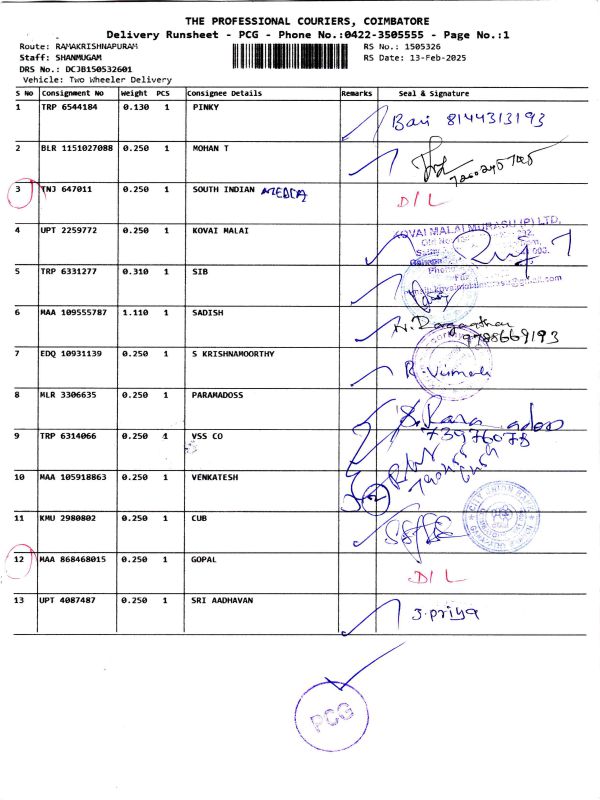 THE PROFESSIONAL COURIERS, COIMBATORE
Delivery Runsheet - PCG - Phone No.:0422-3505555 - Page No.:1
Route: RAMAKRISHNAPURAM RS No.: 1505326
Staff: SHANMUGAM RS Date: 13-Feb-2025
DRS No.: DCJB150532601
Vehicle: Two Wheeler Delivery
S No Consignment No Weight PCS Consignee Details Remarks Seal & Signature
1 TRP 6544184 0.130 1 PINKY
Bari 8144313193
2 BLR 1151027088 0.250 1 MOHAN T
3 TNJ 647011 0.250 1 SOUTH INDIAN MEDIA D/L
4 UPT 2259772 0.250 1 KOVAI MALAI
KOVAI MALAI MURASU (P) LTD.
5 TRP 6331277 0.310 1 SIB
6 MAA 109555787 1.110 1 SADISH
9788669193
7 EDQ 10931139 0.250 1 S KRISHNAMOORTHY
R. Vimala
8 MLR 3306635 0.250 1 PARAMADOSS
9 TRP 6314066 0.250 1 VSS CO
10 MAA 105918863 0.250 1 VENKATESH
11 KMU 2980802 0.250 1 CUB
CITY UNION BANK
12 MAA 868468015 0.250 1 GOPAL
D/L
13 UPT 4087487 0.250 1 SRI AADHAVAN
J. priya
PCG